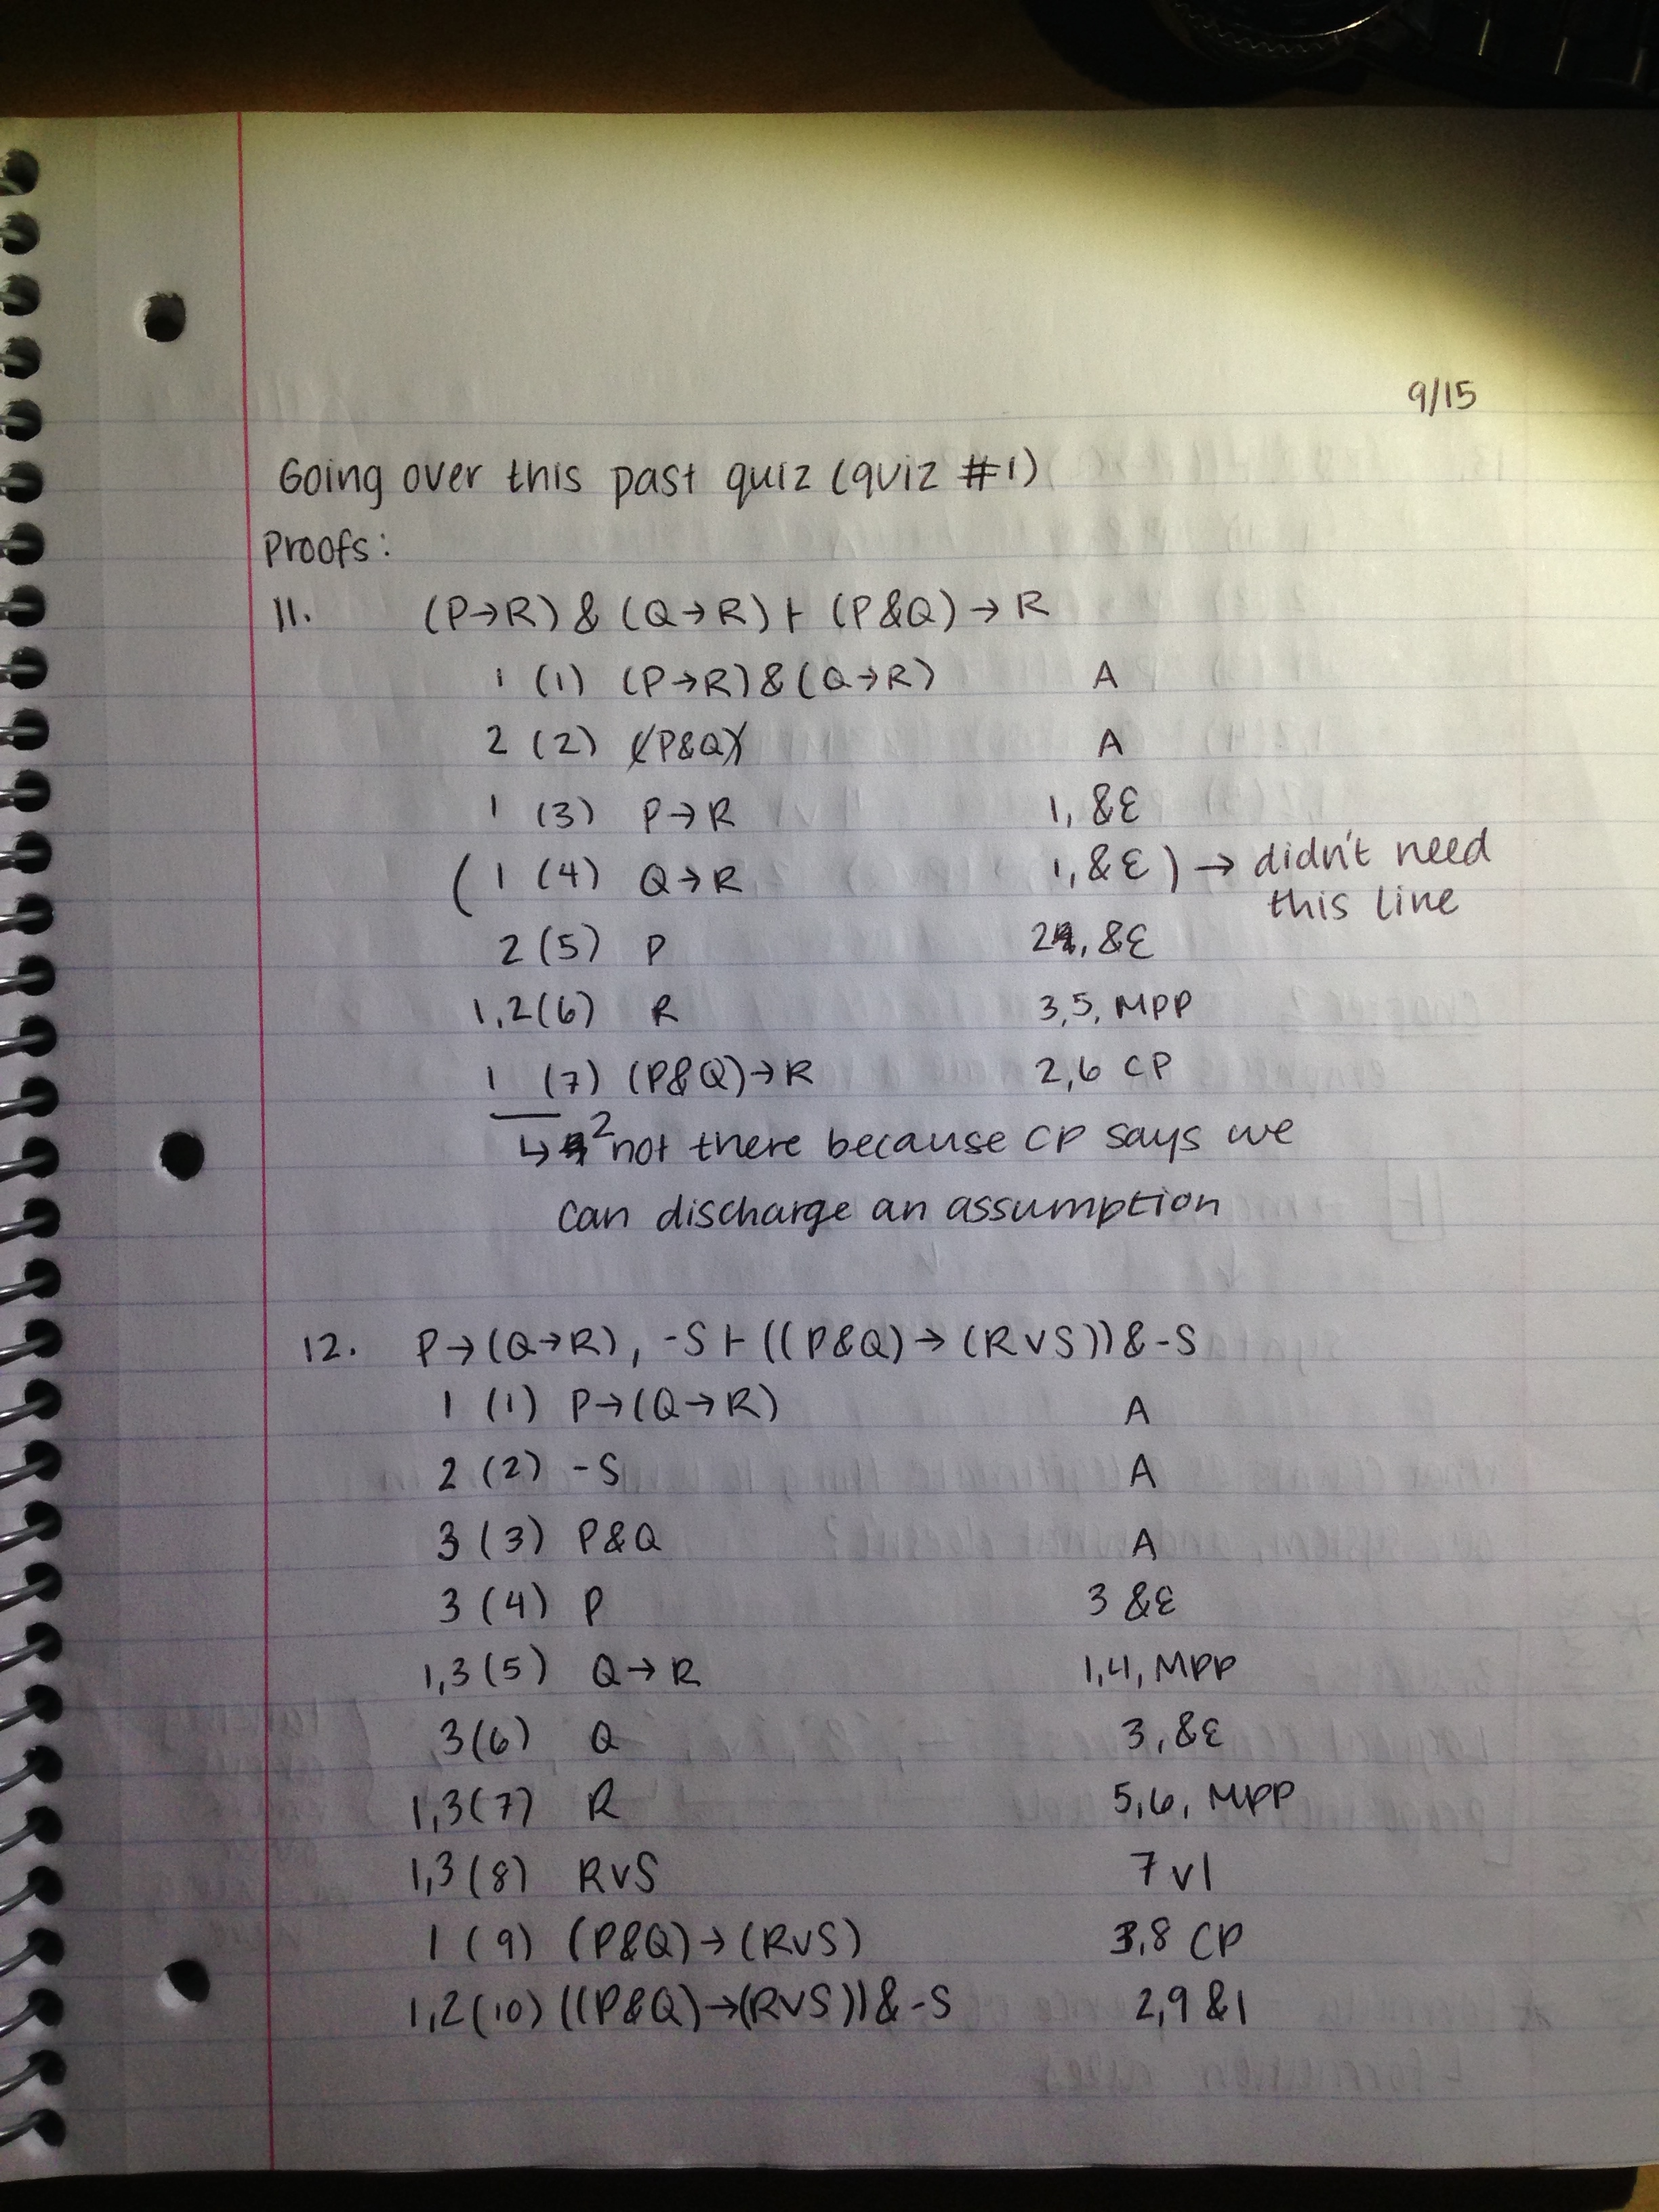 9/15
Going over this past quiz (quiz #1)
Proofs:
11. (P→R) & (Q→R) ⊢ (P&Q) → R
1 (1) (P→R) & (Q→R) A
2 (2) (P&Q) A
1 (3) P→R 1, &E
( 1 (4) Q→R 1, &E ) → didn't need
this line
2 (5) P 2, &E
1,2 (6) R 3,5, MPP
1 (7) (P&Q)→R 2,6 CP
↳ 2 not there because CP says we
can discharge an assumption
12. P→(Q→R), -S ⊢ ((P&Q) → (RvS)) & -S
1 (1) P→(Q→R) A
2 (2) -S A
3 (3) P&Q A
3 (4) P 3 &E
1,3 (5) Q→R 1,4, MPP
3 (6) Q 3, &E
1,3 (7) R 5,6, MPP
1,3 (8) RvS 7 vI
1 (9) (P&Q)→(RvS) 3,8 CP
1,2 (10) ((P&Q)→(RvS)) & -S 2,9 &I